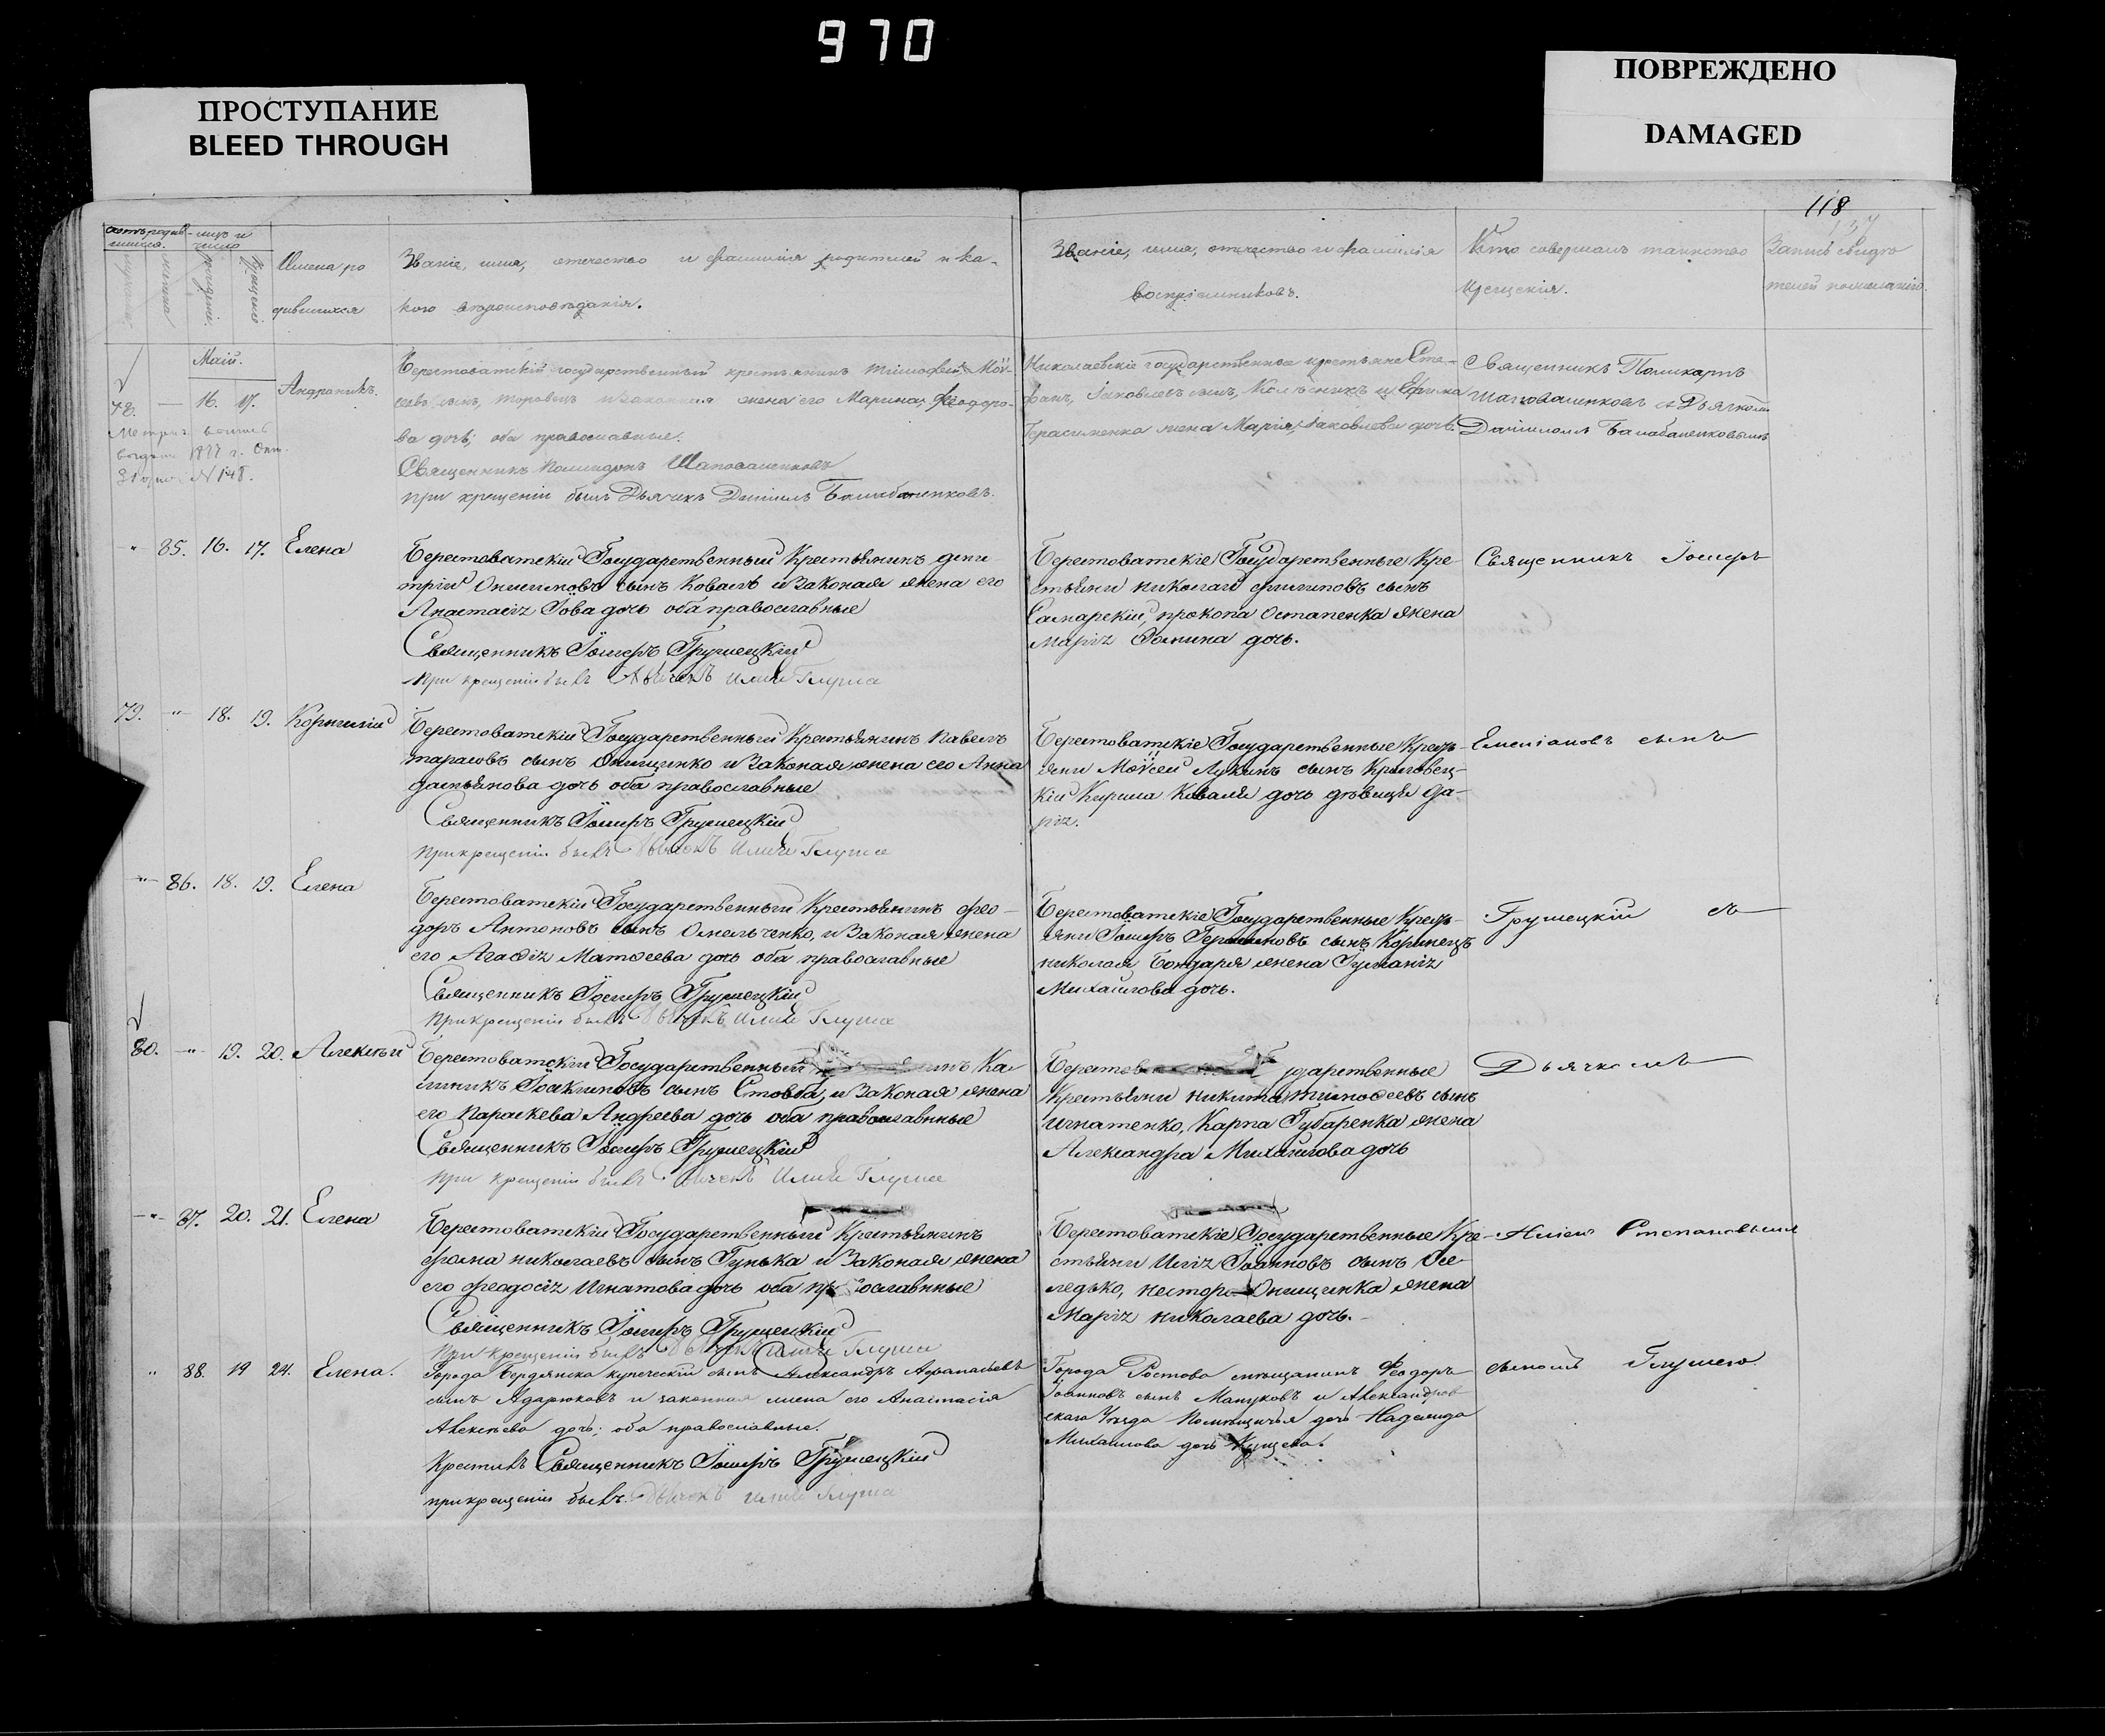 970
ПРОСТУПАНИЕ
BLEED THROUGH
ПОВРЕЖДЕНО
DAMAGED
118
Имена ро
дившихся
Званіе, имя, отечество и фамилія родителей и ка-
кого вѣроисповѣданія.
Званіе, имя, отечество и фамилія
воспріемниковъ.
Кто совершалъ таинство
крещенія.
Запись свидѣ
телей
Маій.
78. — 16. 17. Андроникъ.
Берестоватскій государственный крестьянинъ Тимофей Мої-
сеевъ сынъ, и законная жена его Марина, Феодоро-
ва дочь; оба православные.
Священникъ Шаповаленковъ
при крещеніи былъ Дьячекъ Даніилъ Балабаненковъ.
Николаевскіе государственные крестьяне Сте-
фанъ, Іаковлевъ сынъ, Колѣсникъ и Ефима
Герасименко жена Марія, Іаковлева дочь.
Священникъ Поликарпъ
Шаповаленковъ съ Дьячкомъ
Даніиломъ Балабаненковымъ
1877 г. Окт.
31 № 148.
" 85. 16. 17. Елена
Берестоватскій Государственный Крестьянинъ дми
трій Онисимовъ сынъ Коваль и Законая жена его
Анастасія Іова дочь оба православные
Священникъ Іосифъ Грушецкій
При крещеніи былъ Дьячекъ Илія Глуша
Берестоватскіе Государственные Кре
стьяни николай филиповъ сынъ
Самарскій, прокопа Остапенка жена
Марія Фомина дочь.
Священникъ Іосифъ
79. " 18. 19. Корнилій
Берестоватскій Государственный Крестьянинъ Павелъ
тарасовъ сынъ Онищенко и Законая жена его Анна
дамьянова дочь оба православные
Священникъ Іосифъ Грушецкій
При крещеніи былъ Дьячекъ Илія Глуша
Берестоватскіе Государственные Кресть-
яни Мойсей Лукинъ сынъ
кій Кирила Коваля дочь дѣвица Да-
рія.
Емеліановъ сынъ
" 86. 18. 19. Елена
Берестоватскій Государственный Крестьянинъ фео-
доръ Антоновъ сынъ Омельченко, и Законая жена
его Агафія Матѳеева дочь оба православные
Священникъ Іосифъ Грушецкій
При крещеніи былъ Дьячекъ Илія Глуша
Берестоватскіе Государственные Кресть-
яни Іосифъ сынъ Коринецъ
николая Бондаря жена Іуліанія
Михайлова дочь.
Грушецкій съ
80. " 19. 20. Алексѣй
Берестоватскій Государственный инъ Ка
линикъ Іоакимовъ сынъ Стовба, и Законая жена
его Параскева Андреева дочь оба православные
Священникъ Іосифъ Грушецкій
при крещеніи былъ Дьячекъ Илія Глуша
Берестов ударственные
Крестьяни никита тимоѳеевъ сынъ
Игнатенко, Карпа Губаренка жена
Александра Михайлова дочь
Дьячкомъ
" 87. 20. 21. Елена
Берестоватскій Государственный Крестьянинъ
фома николаевъ сынъ Гунька и Законая жена
его феодосія Игнатова дочь оба пр ославные
Священникъ Іосифъ Грушецкій
При крещеніи былъ Дьячекъ Илія Глуша
Берестоватскіе Государственные Кре-
стьяни Илія Іоанновъ сынъ Осе-
ледько, нестора Онищенка жена
Марія николаева дочь.
Иліею Степановымъ
" 88. 19 24. Елена.
Города Бердянска купеческій сынъ Александръ Афанасьевъ
сынъ Адарюковъ и законная жена его Анастасія
Алексѣева дочь; оба православные.
Крестилъ Священникъ Іосифъ Грушецкій
при крещеніи былъ Дьячекъ Илія Глуша
Города Ростова мѣщанинъ Феодоръ
Іоанновъ сынъ Мануковъ и Александров
скаго Уѣзда Помѣщичья дочь Надежда
Михаилова дочь Кущева.
сыномъ Глушею.